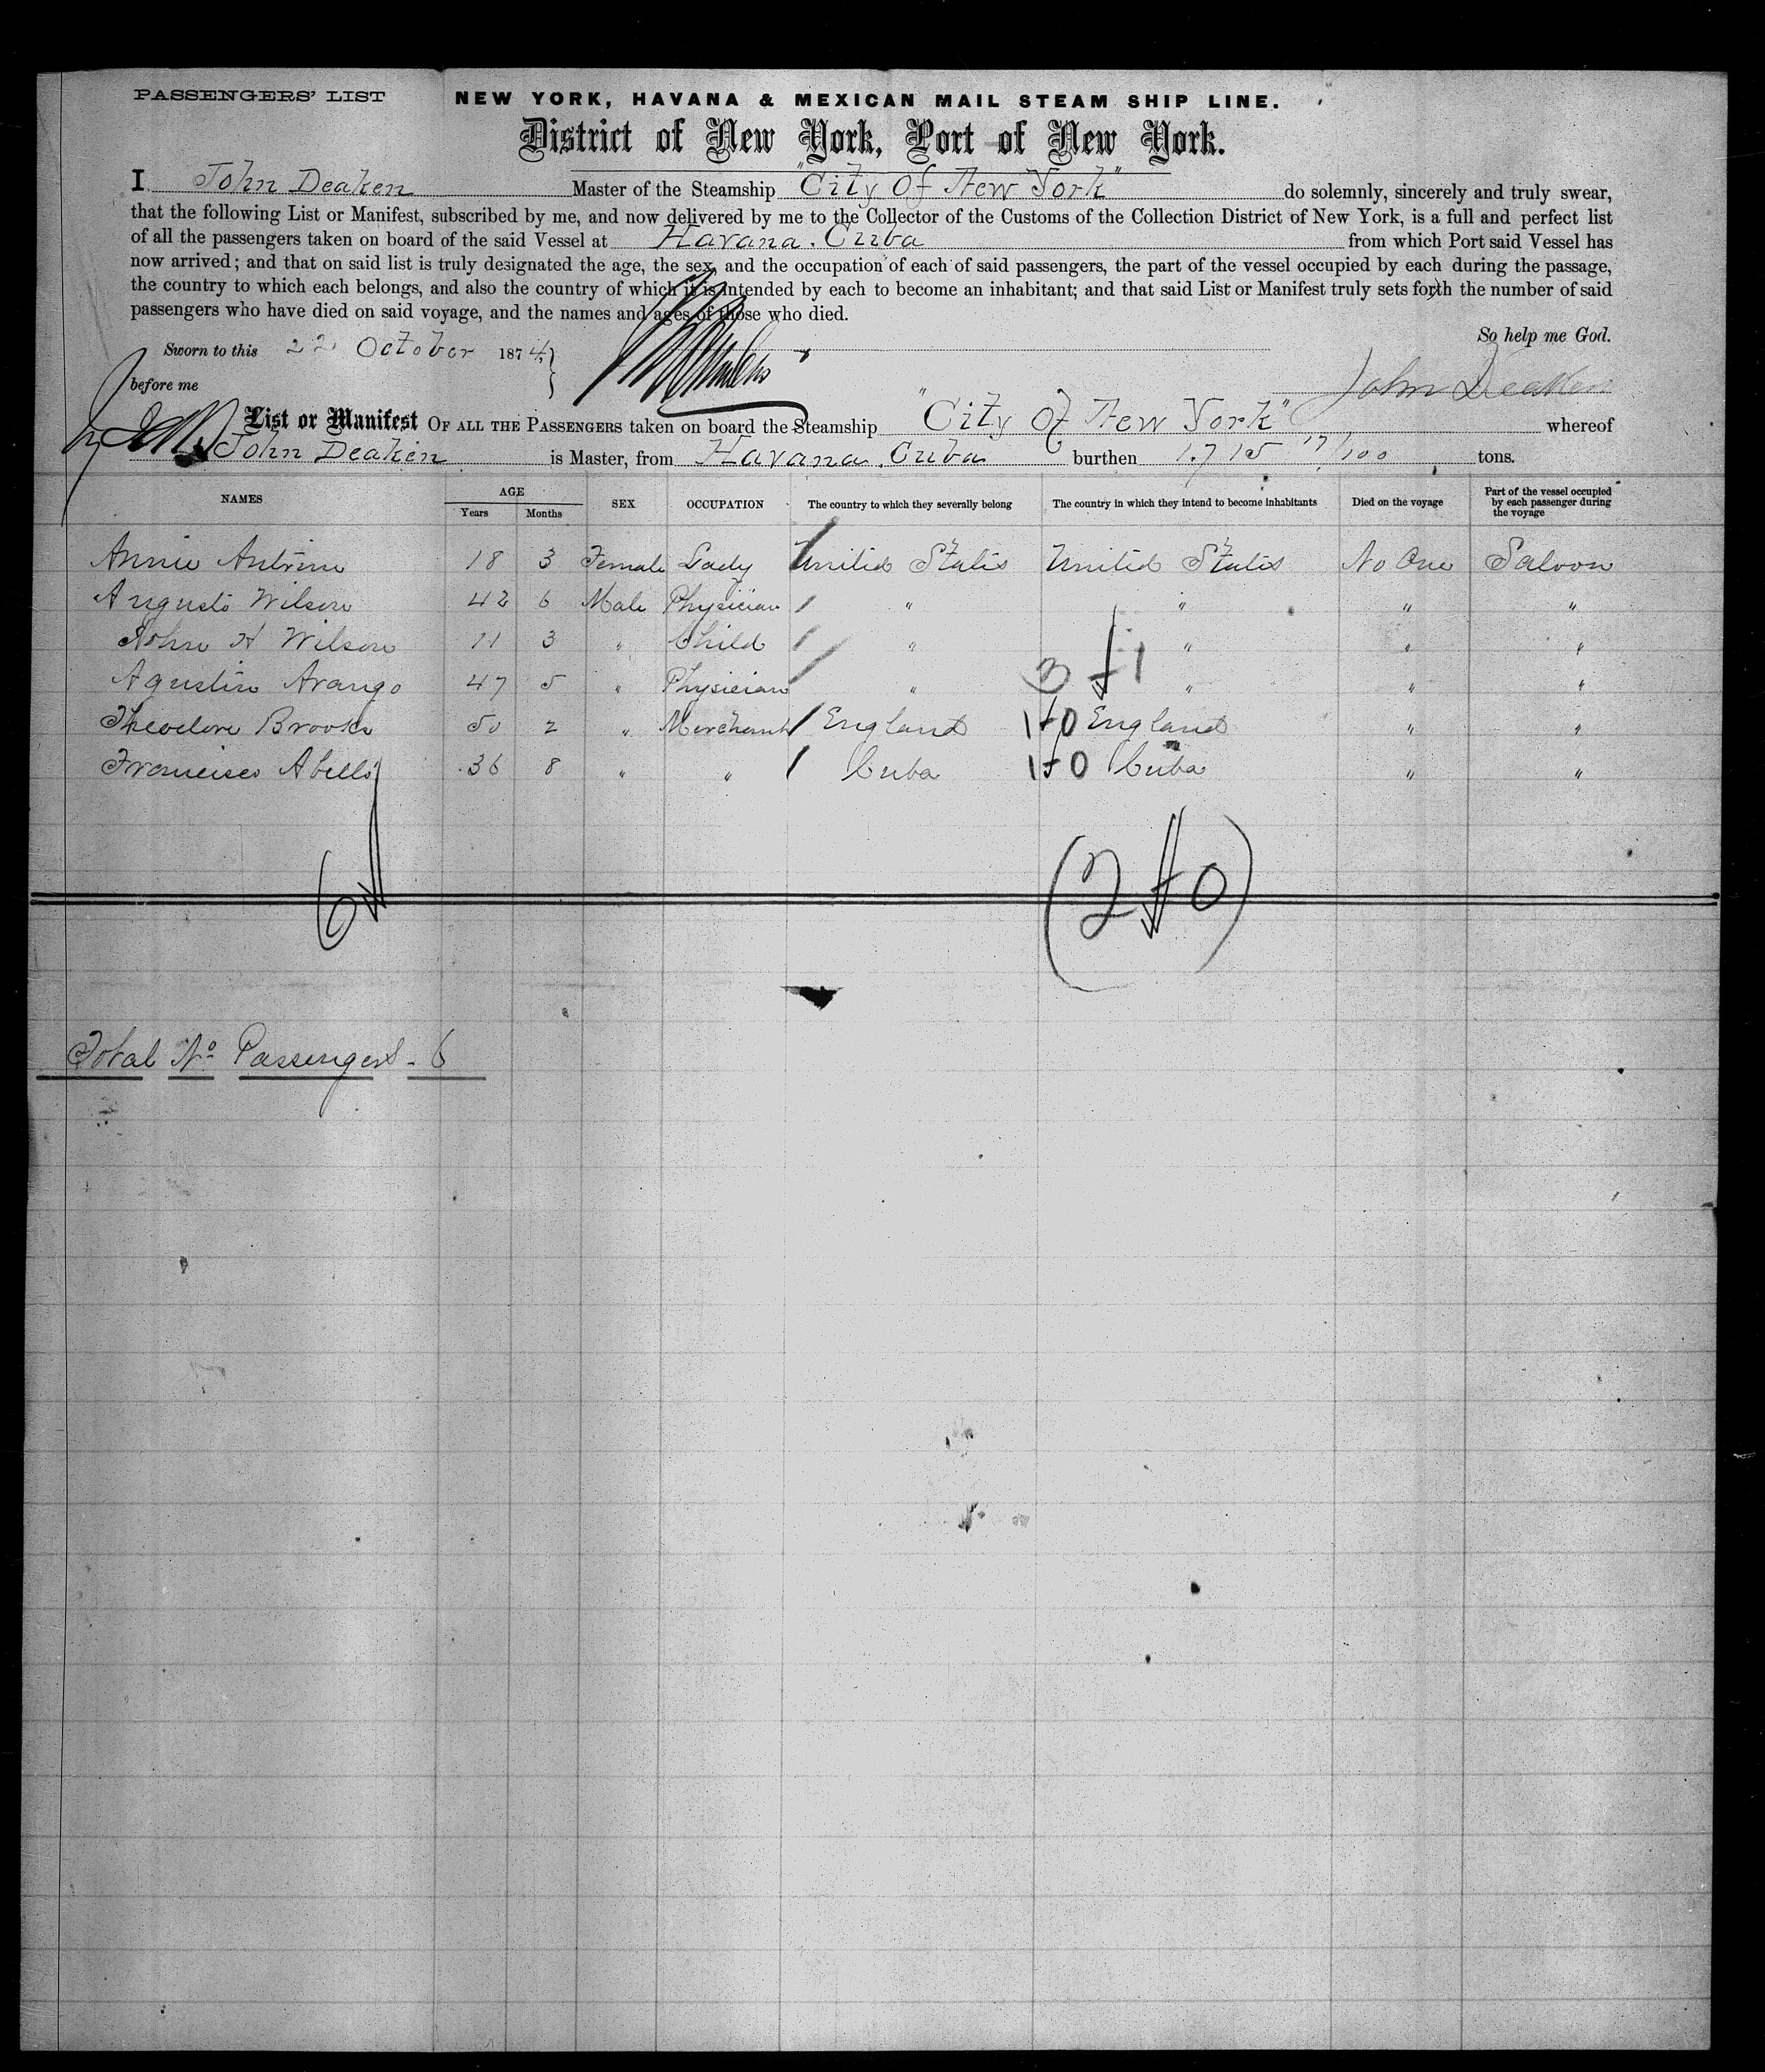 PASSENGERS' LIST
NEW YORK, HAVANA & MEXICAN MAIL STEAM SHIP LINE.
District of New York, Port of New York.
I John Deaken Master of the Steamship "City Of New York" do solemnly, sincerely and truly swear,
that the following List or Manifest, subscribed by me, and now delivered by me to the Collector of the Customs of the Collection District of New York, is a full and perfect list
of all the passengers taken on board of the said Vessel at Havana. Cuba from which Port said Vessel has
now arrived; and that on said list is truly designated the age, the sex, and the occupation of each of said passengers, the part of the vessel occupied by each during the passage,
the country to which each belongs, and also the country of which it is intended by each to become an inhabitant; and that said List or Manifest truly sets forth the number of said
passengers who have died on said voyage, and the names and ages of those who died.
So help me God.
Sworn to this 22 October 1874
before me
John Deaken
List or Manifest OF ALL THE PASSENGERS taken on board the Steamship "City Of New York" whereof
John Deaken is Master, from Havana. Cuba burthen 1.715 17/100 tons.
NAMES AGE Years Months SEX OCCUPATION The country to which they severally belong The country in which they intend to become inhabitants Died on the voyage Part of the vessel occupied by each passenger during the voyage
Annie Antrim 18 3 Female Lady United States United States No One Saloon
Augusto Wilson 42 6 Male Physician " " " "
John H Wilson 11 3 " Child " " " "
Agustin Arango 47 5 " Physician " " " "
Theodore Brooks 50 2 " Merchant England England " "
Francisco Abello 36 8 " " Cuba Cuba " "
6
(2 0)
Total No Passengers - 6